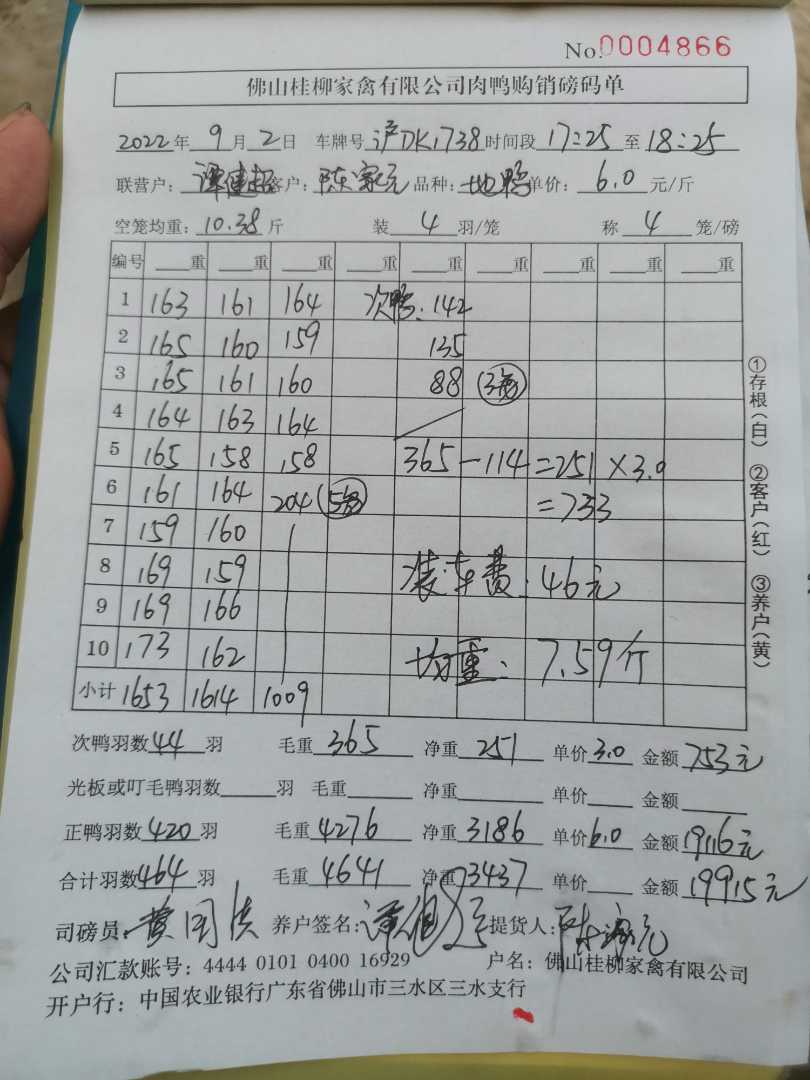 No.0004866
佛山桂柳家禽有限公司肉鸭购销磅码单
2022年 9 月 2 日 车牌号 沪DK1738 时间段 17:25 至 18:25
联营户: 谭健超 客户: 陈家元 品种: 地鸭 单价: 6.0 元/斤
空笼均重: 10.38 斤 装 4 羽/笼 称 4 笼/磅
编号 重 重 重 重 重 重 重 重 重
1 163 161 164 次鸭: 142
2 165 160 159 135
3 165 161 160 88 (3笼)
4 164 163 164
5 165 158 158 365-114=251×3.0
6 161 164 204 (5笼) =753
7 159 160
8 169 159 装车费: 46元
9 169 166
10 173 162 均重: 7.59斤
小计 1653 1614 1009
次鸭羽数 44 羽 毛重 365 净重 251 单价 3.0 金额 753元
光板或叮毛鸭羽数 羽 毛重 净重 单价 金额
正鸭羽数 420 羽 毛重 4276 净重 3186 单价 6.0 金额 19116元
合计羽数 464 羽 毛重 4641 净重 3437 单价 金额 19915元
司磅员: 黄国 养户签名: 谭健超 提货人: 陈家元
公司汇款账号: 4444 0101 0400 16929 户名: 佛山桂柳家禽有限公司
开户行: 中国农业银行广东省佛山市三水区三水支行
①存根(白) ②客户(红) ③养户(黄)